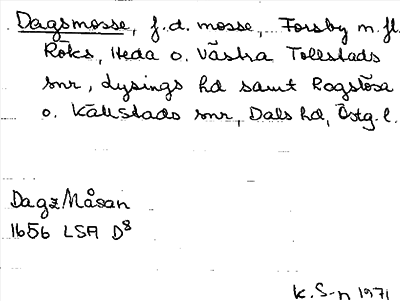 Dagsmosse, f.d. mosse, Forsby m.fl.
Röks, Heda o. Västra Tollstads
snr, Lysings hd samt Rogslösa
o. Källstads snr, Dals hd, Östg. l.
Dagz Måsan
1656 LSA D8
K. S-n 1971